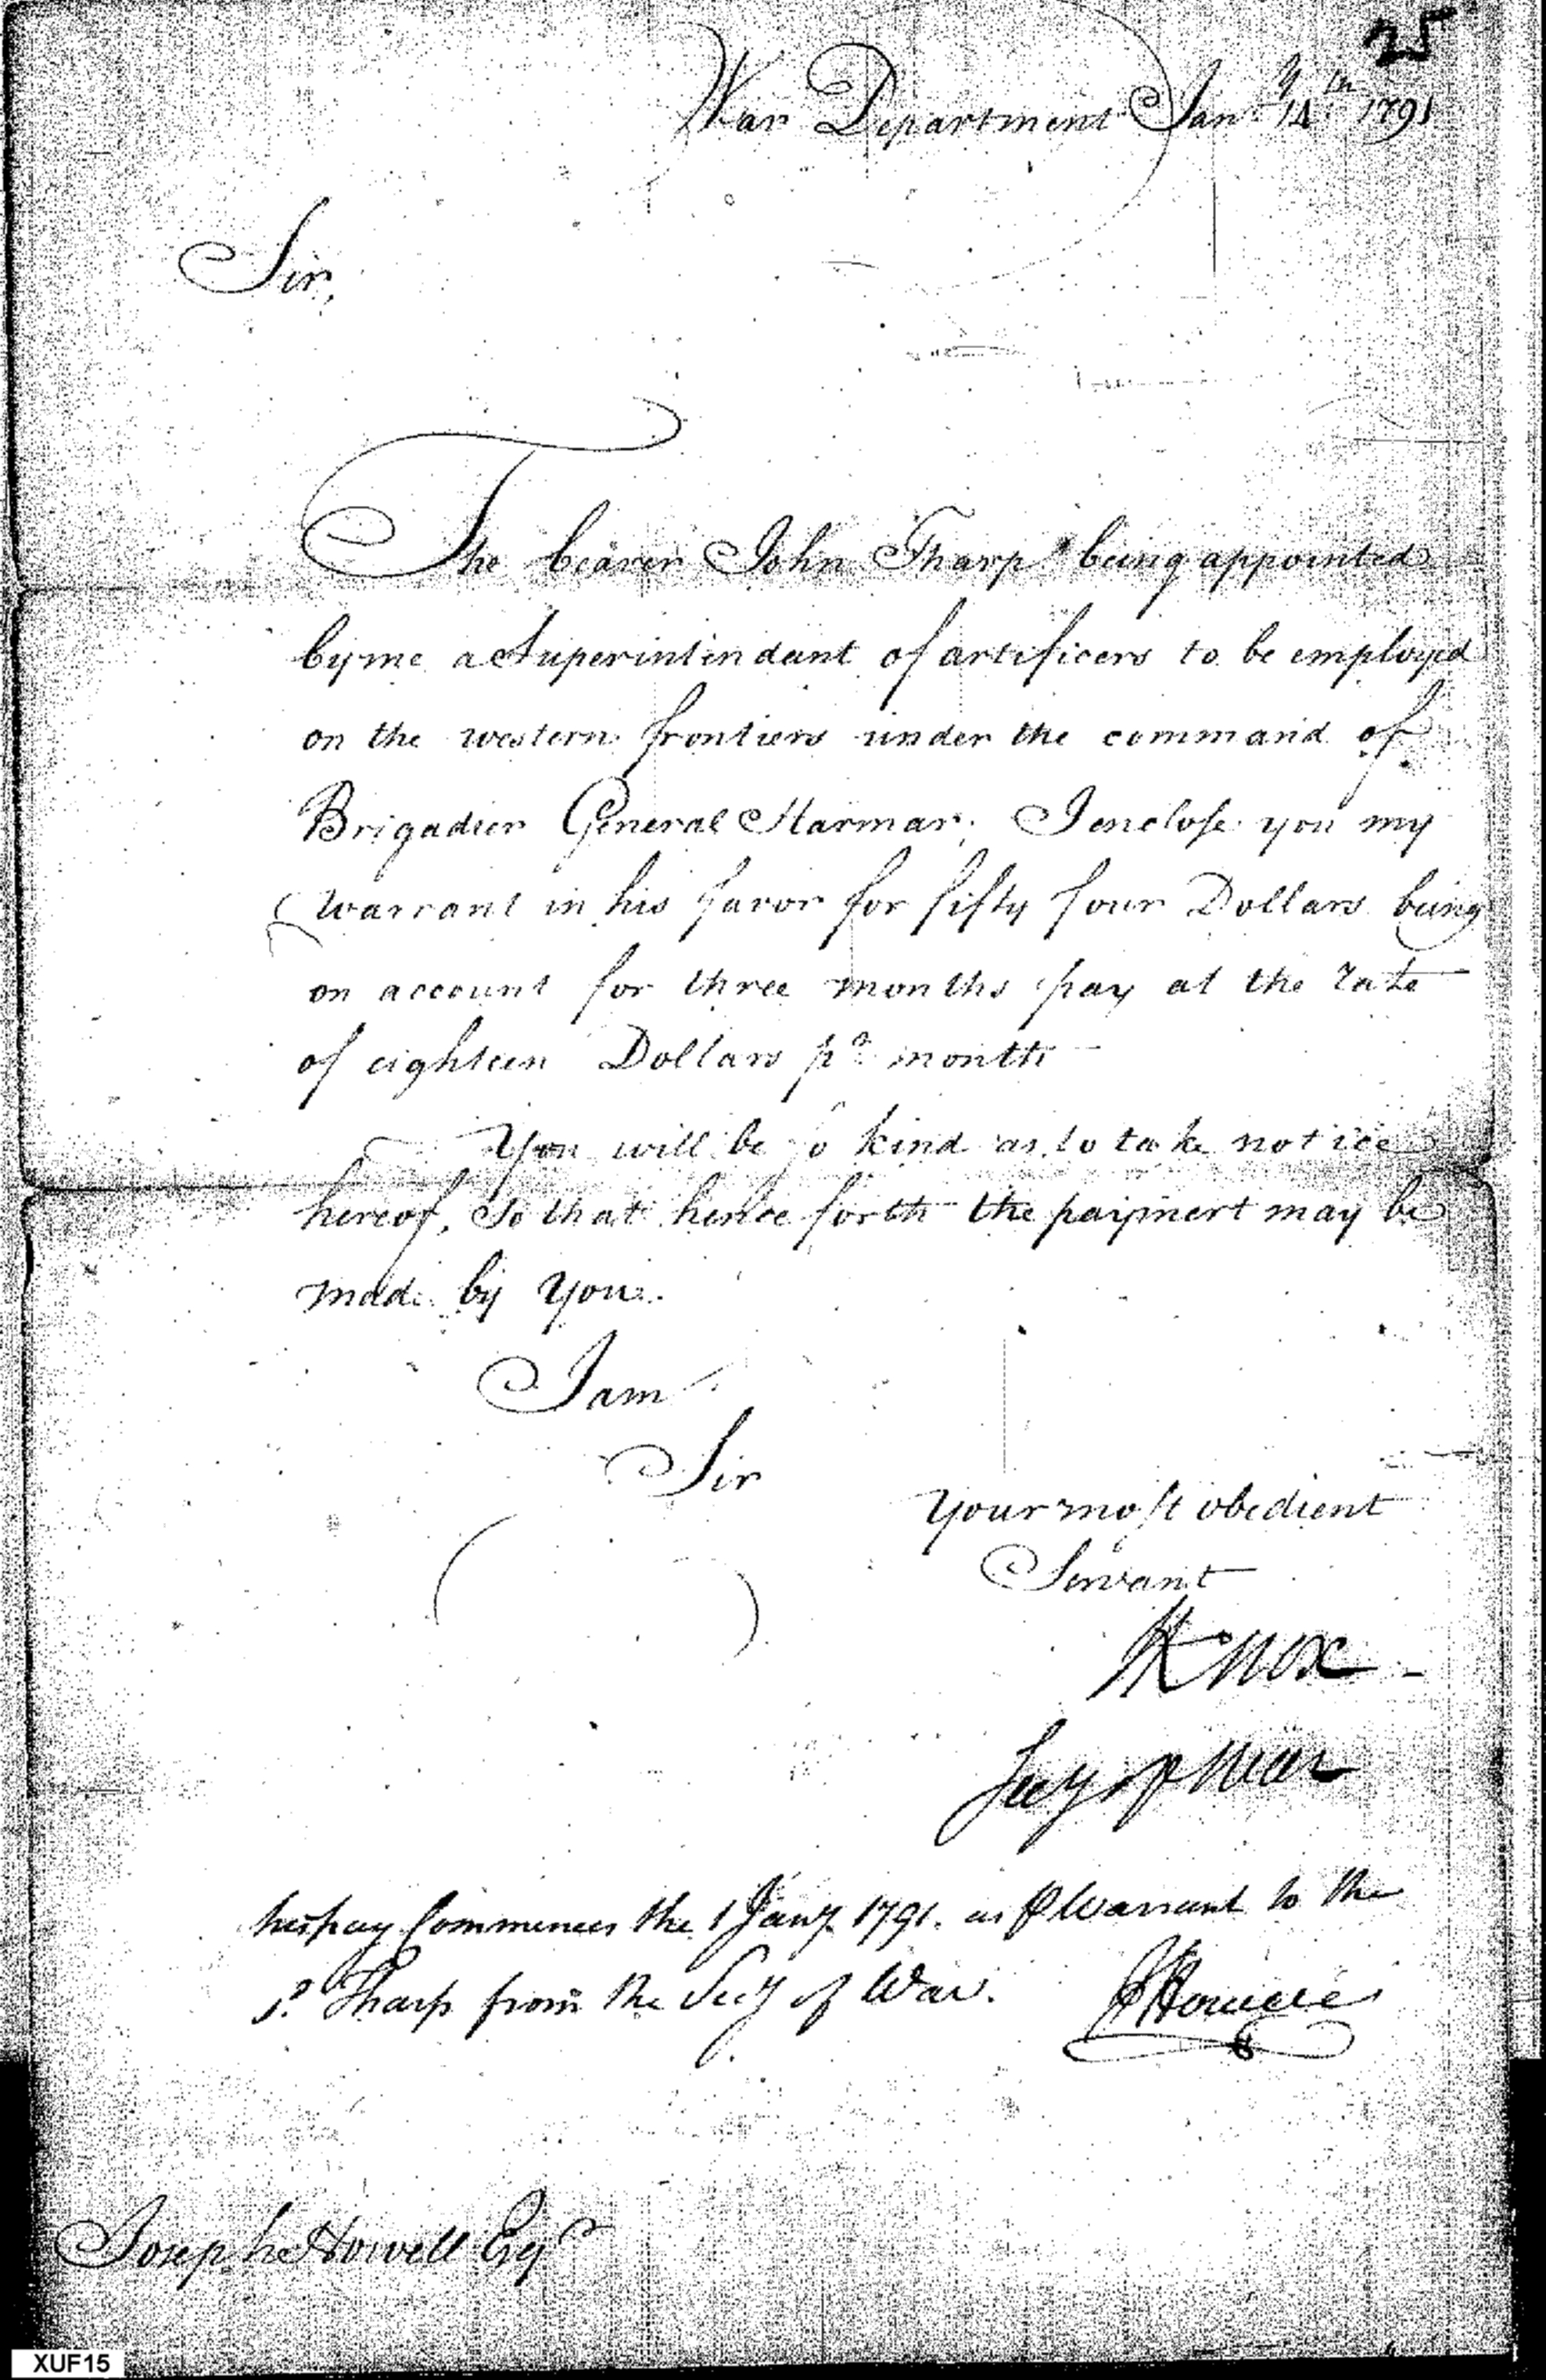 25
War Department Jan.y 14th 1791
Sir,
The bearer John Tharp being appointed
by me a Superintendant of artificers to be employed
on the western frontiers under the command of
Brigadier General Harmar, I enclose you my
warrant in his favor for fifty four Dollars being
on account for three months pay at the rate
of eighteen Dollars pr month
You will be so kind as to take notice
hereof, So that hence forth the payment may be
made by you.
I am
Sir
Your most obedient
Servant
HKnox
Secy of War
his pay Commences the 1 Jany 1791. as P Warrant to the
sd. Tharp from the Secy of War. JHowell
Joseph Howell Esqr
XUF15